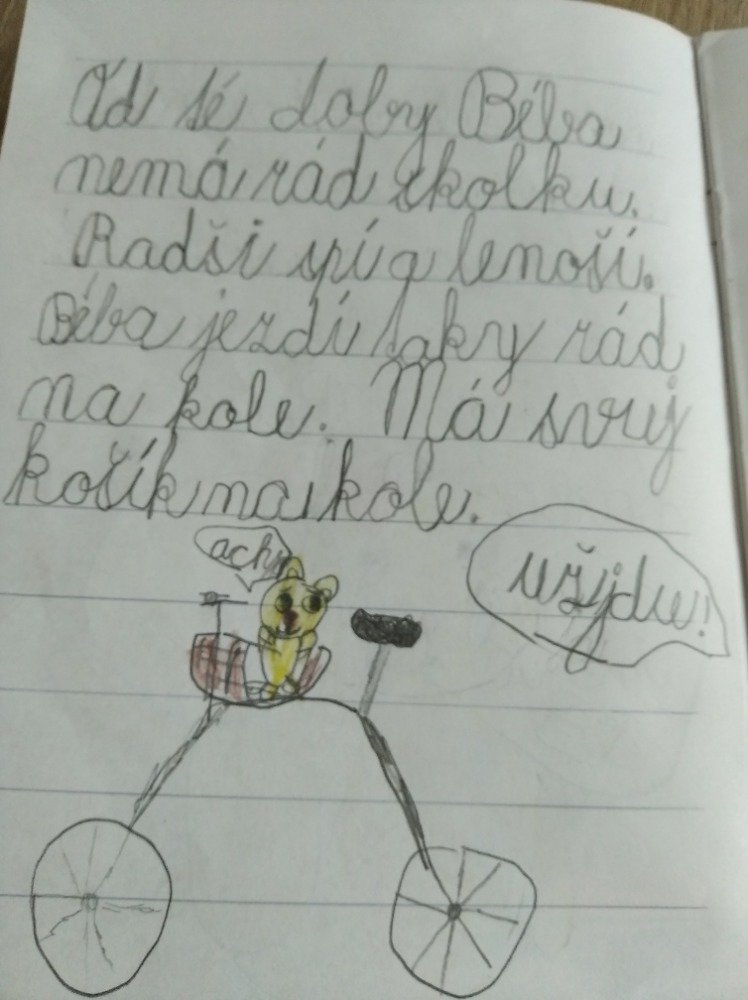 Od té doby Béba
nemá rád školku.
Radši spí a lenoší.
Béba jezdí taky rád
na kole. Má svuj
košík na kole.
ach
užjdu!